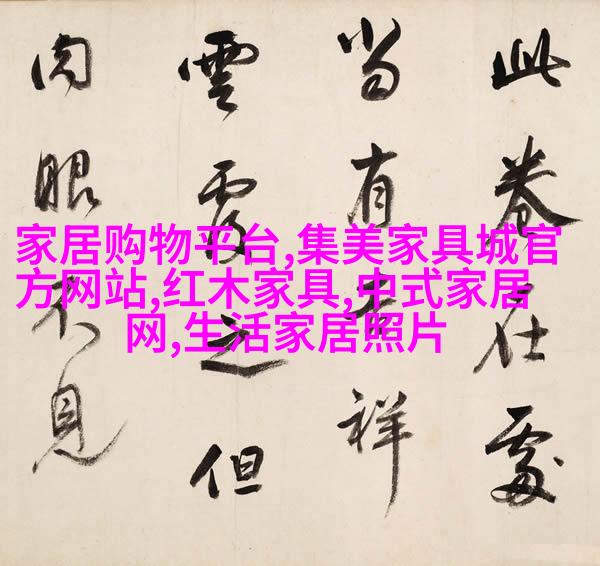 此卷在處
當有吉祥
雲覆之但
肉眼不見
家居购物平台,集美家具城官
方网站,红木家具,中式家居
网,生活家居照片